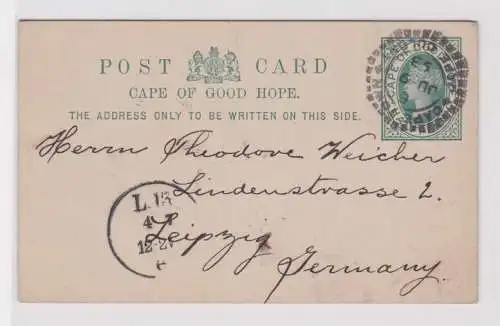 POST CARD
CAPE OF GOOD HOPE.
THE ADDRESS ONLY TO BE WRITTEN ON THIS SIDE.
Herrn Theodore Weicher
Lindenstrasse 2.
Leipzig
Germany.
CAPE OF